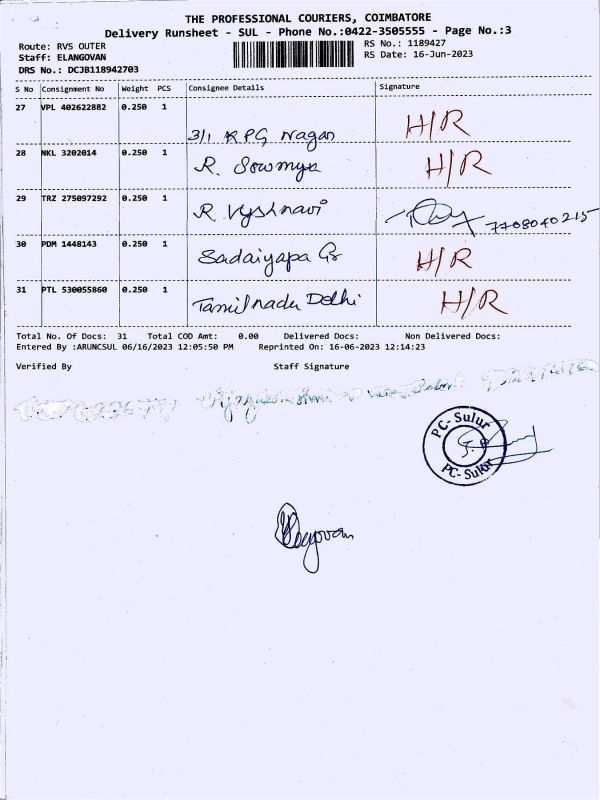 THE PROFESSIONAL COURIERS, COIMBATORE
Delivery Runsheet - SUL - Phone No.:0422-3505555 - Page No.:3
Route: RVS OUTER RS No.: 1189427
Staff: ELANGOVAN RS Date: 16-Jun-2023
DRS No.: DCJB118942703
S No Consignment No Weight PCS Consignee Details Signature
27 VPL 402622882 0.250 1 3/1 KPG Nagar H/R
28 NKL 3202014 0.250 1 R. Sowmya H/R
29 TRZ 275097292 0.250 1 R Vyshnavi 7708040215
30 PDM 1448143 0.250 1 Sadaiyapa Gr H/R
31 PTL 530055860 0.250 1 Tamilnadu Delhi H/R
Total No. Of Docs: 31 Total COD Amt: 0.00 Delivered Docs: Non Delivered Docs:
Entered By :ARUNCSUL 06/16/2023 12:05:50 PM Reprinted On: 16-06-2023 12:14:23
Verified By Staff Signature
PC-Sulur
PC-Sulur
Elangovan